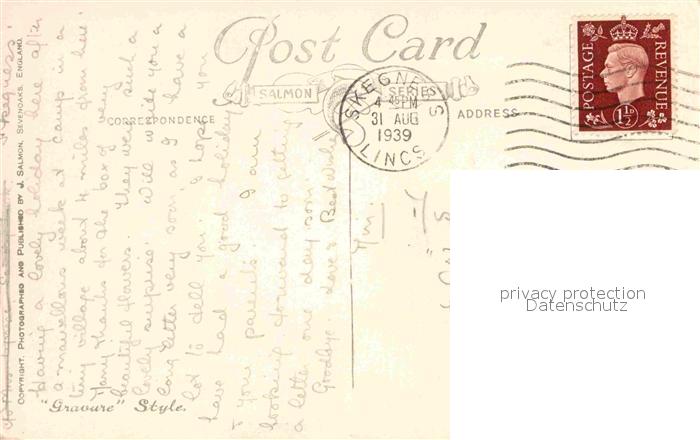 Post Card
SALMON SERIES
CORRESPONDENCE
ADDRESS
SKEGNESS
4 45PM
31 AUG
1939
LINCS
POSTAGE
REVENUE
1½D
COPYRIGHT. PHOTOGRAPHED AND PUBLISHED BY J. SALMON, SEVENOAKS, ENGLAND.
"Gravure" Style.
Skegness
Having a lovely holiday here after
a marvellous week at camp in a
tiny village about 4 miles from here
Many thanks for the box of very
beautiful flowers. They were such a
lovely surprise. Will write you a
long letter very soon, as I have a
lot to tell you. I hope you
have had a good holiday &
your parents. I am
looking forward to getting
a letter one day soon.
Goodbye Love & Best Wishes
privacy protection
Datenschutz